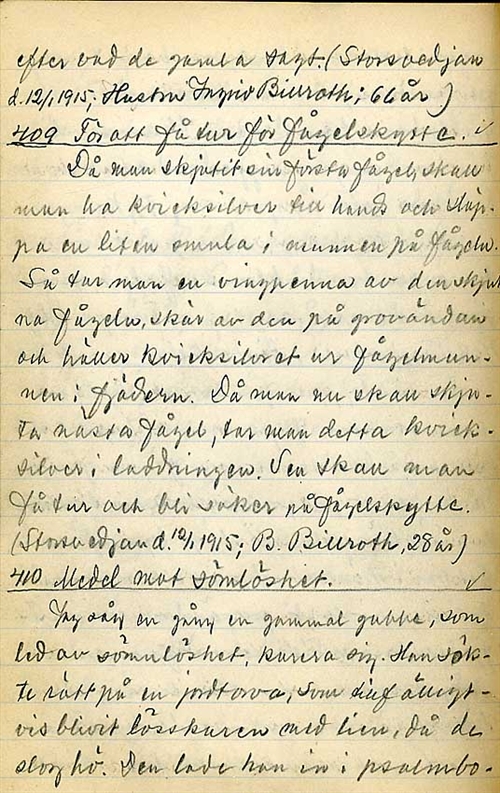 efter vad de gamla sagt. (Storsvedjan
d. 12/1, 1915; Hustru Ingrid Billroth; 66 år)
409 För att få tur för fågelskytte. ✓
Då man skjutit sin första fågel, skall
man ha kvicksilver till hands och släp-
pa en liten smula i munnen på fågeln.
Så tar man en vingpenna av den skjut
na fågeln, skär av den på grovändan
och häller kvicksilvret ur fågelmun-
nen i fjädern. Då man nu skall skju-
ta nästa fågel, tar man detta kvick-
silver i laddningen. Sen skall man
få tur och bli säker på fågelskytte.
(Storsvedjan d. 12/1, 1915; B. Billroth, 28 år)
410 Medel mot sömlöshet. ✓
Jag såg en gång en gammal gubbe, som
led av sömnlöshet, kurera sig. Han sök-
te rätt på en jordtorva, som tillfälligt-
vis blivit lösskuren med lien, då de
slog hö. Den lade han in i psalmbo-